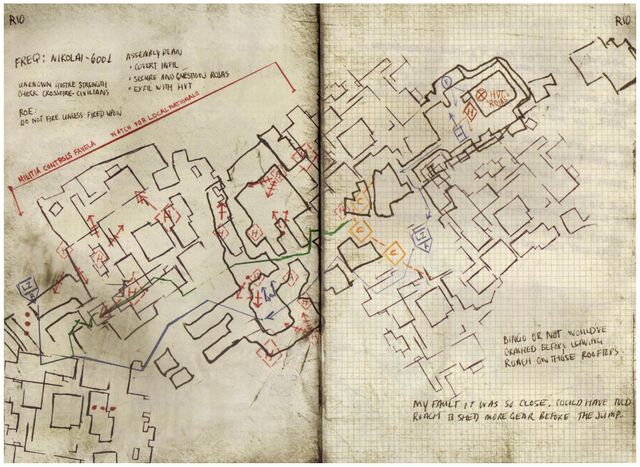 RIO
FREQ: NIKOLAI-6001
UNKNOWN HOSTILE STRENGTH
CHECK CROSSFIRE-CIVILIANS
ROE:
DO NOT FIRE UNLESS FIRED UPON
ASSEMBLY PLAN
• COVERT INFIL
• SECURE AND QUESTION ROJAS
• EXFIL WITH HVT
MILITIA CONTROLS FAVELA WATCH FOR LOCAL NATIONALS
LZ
H
H
H
H
H
RIO
HVT
"ROJAS"
LZ
BINGO OR NOT WOULD'VE
CRASHED BEFORE LEAVING
ROACH ON THOSE ROOFTOPS.
MY FAULT IT WAS SO CLOSE. COULD HAVE TOLD
ROACH TO SHED MORE GEAR BEFORE THE JUMP.